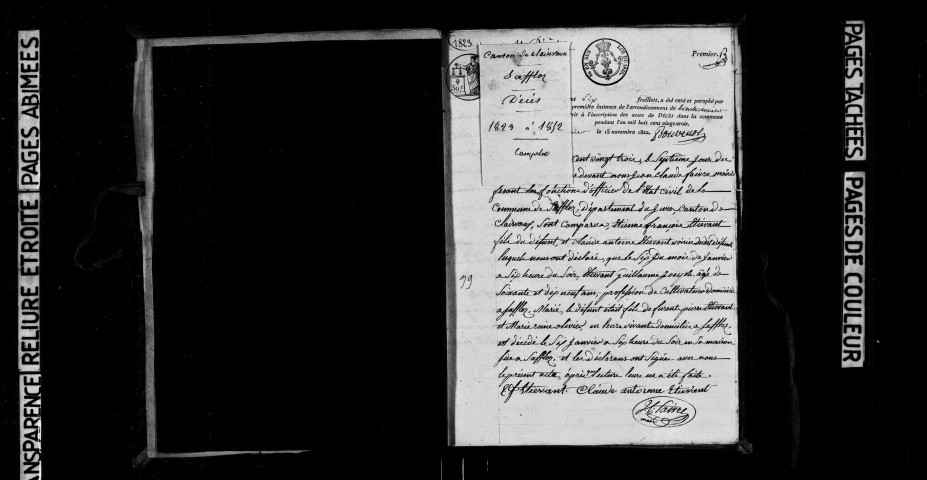 PAGES ABIMEES
RELIURE ETROITE
NSPARENCE
1823
Canton de Clairvaux
Saffloz
Décès
1823 à 1832
Complet
Premier
feuillets, a été coté et paraphé par
première instance de l'arrondissement de
à l'inscription des actes de Décès dans la commune
pendant l'an mil huit cent vingt-trois.
le 15 novembre 1822
cent vingt trois, le Septieme jour de
devant nous jean claude faivre maire
fesant les fonctions d'officier de l'état civil de la
Commune de Saffloz, Département du jura, Canton de
Clairvaux, sont Comparus, Etienne françois Etievant
fils du défunt, et claude antoine Etievant voisin du défunt
lesquels nous ont déclaré, que le Six du mois de Janvier
a Six heure du Soir, Etievant guillaume joseph agé de
Soixante et dix neuf ans, profession de Cultivateur domicilié
a saffloz, Marié, le défunt était fils de furent pierre Etievant
et Marie reine olivier en leurs vivant domiciliés a saffloz,
est décédé le Six janvier a Six heure du Soir en sa maison
sise a Saffloz, et les déclarans ont Signés avec nous
le présent acte, après lecture leurs en a été faite.
E f Etievant Claude antoinne Etievant
J C Faivre
99
PAGES TACHÉES
PAGES DE COULEUR